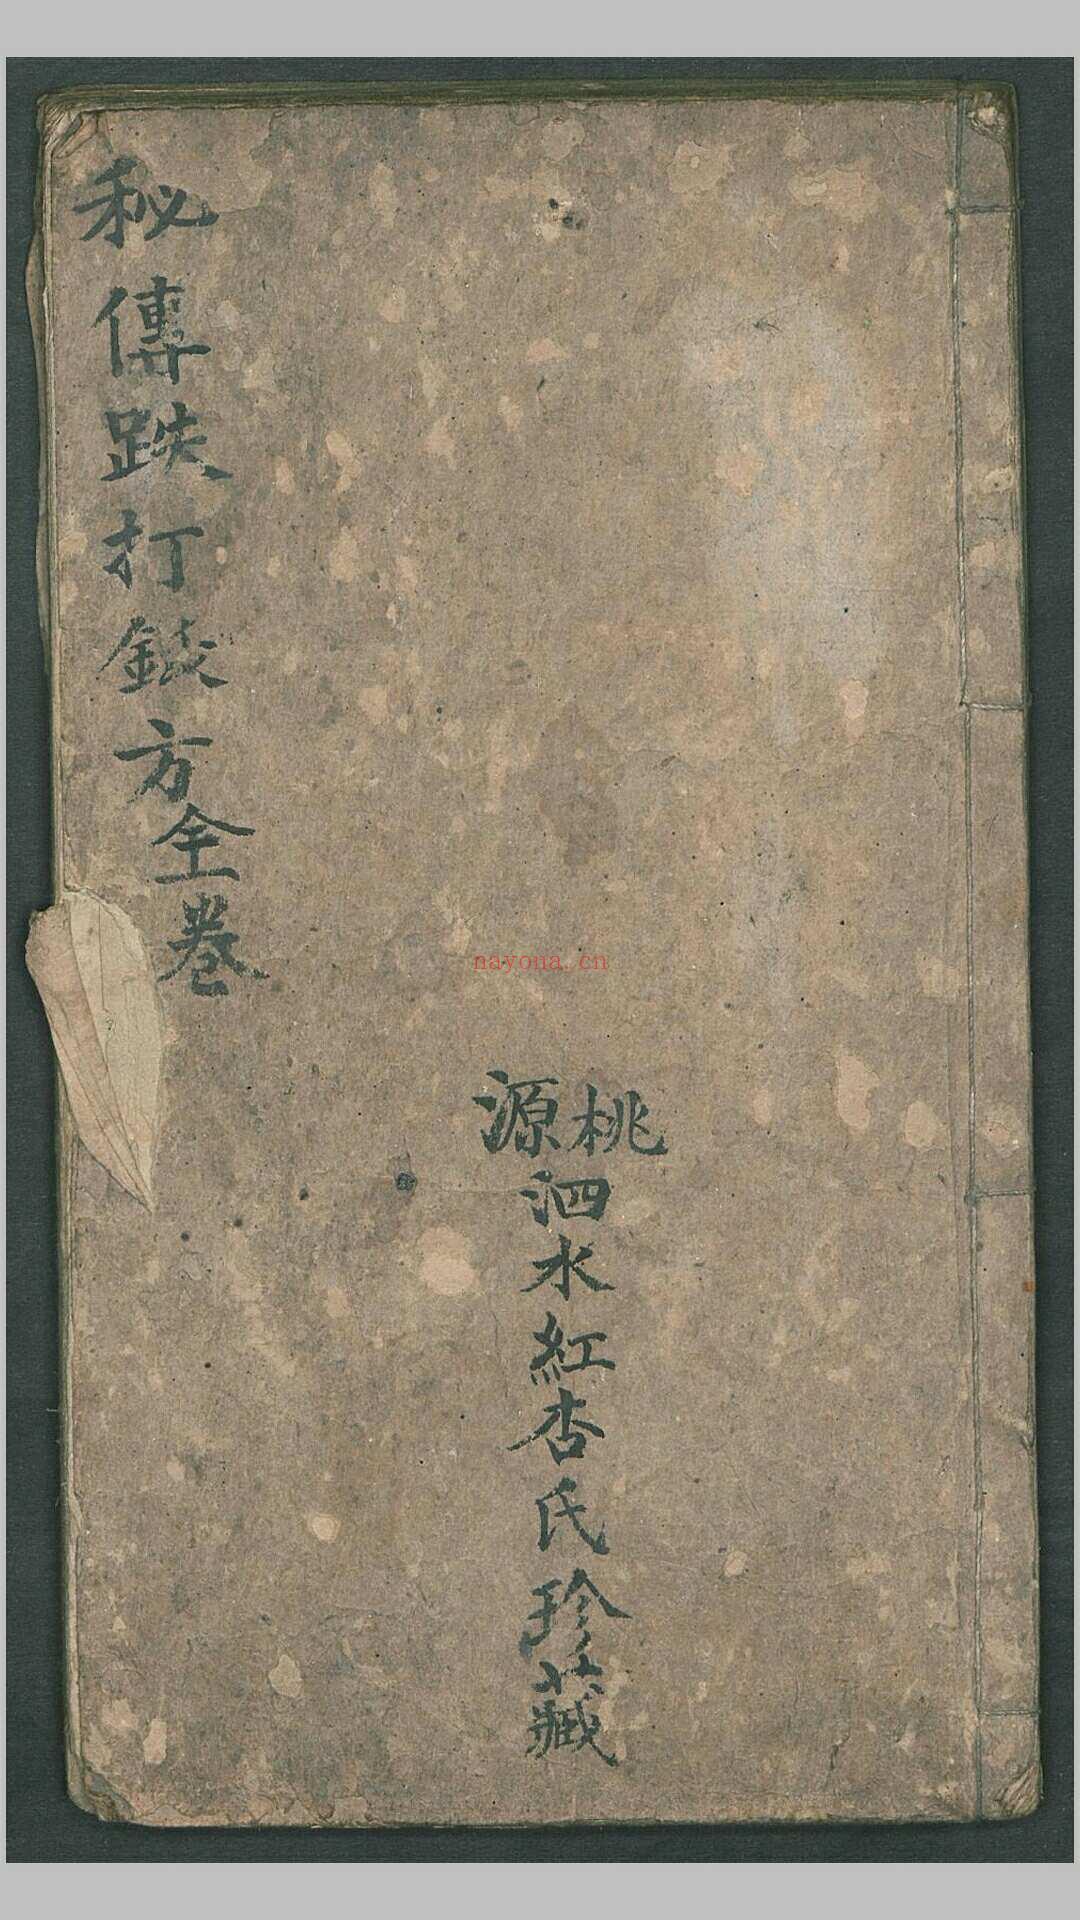 秘傳跌打方全卷
nayona.cn
桃源
泗水紅杏氏珍藏